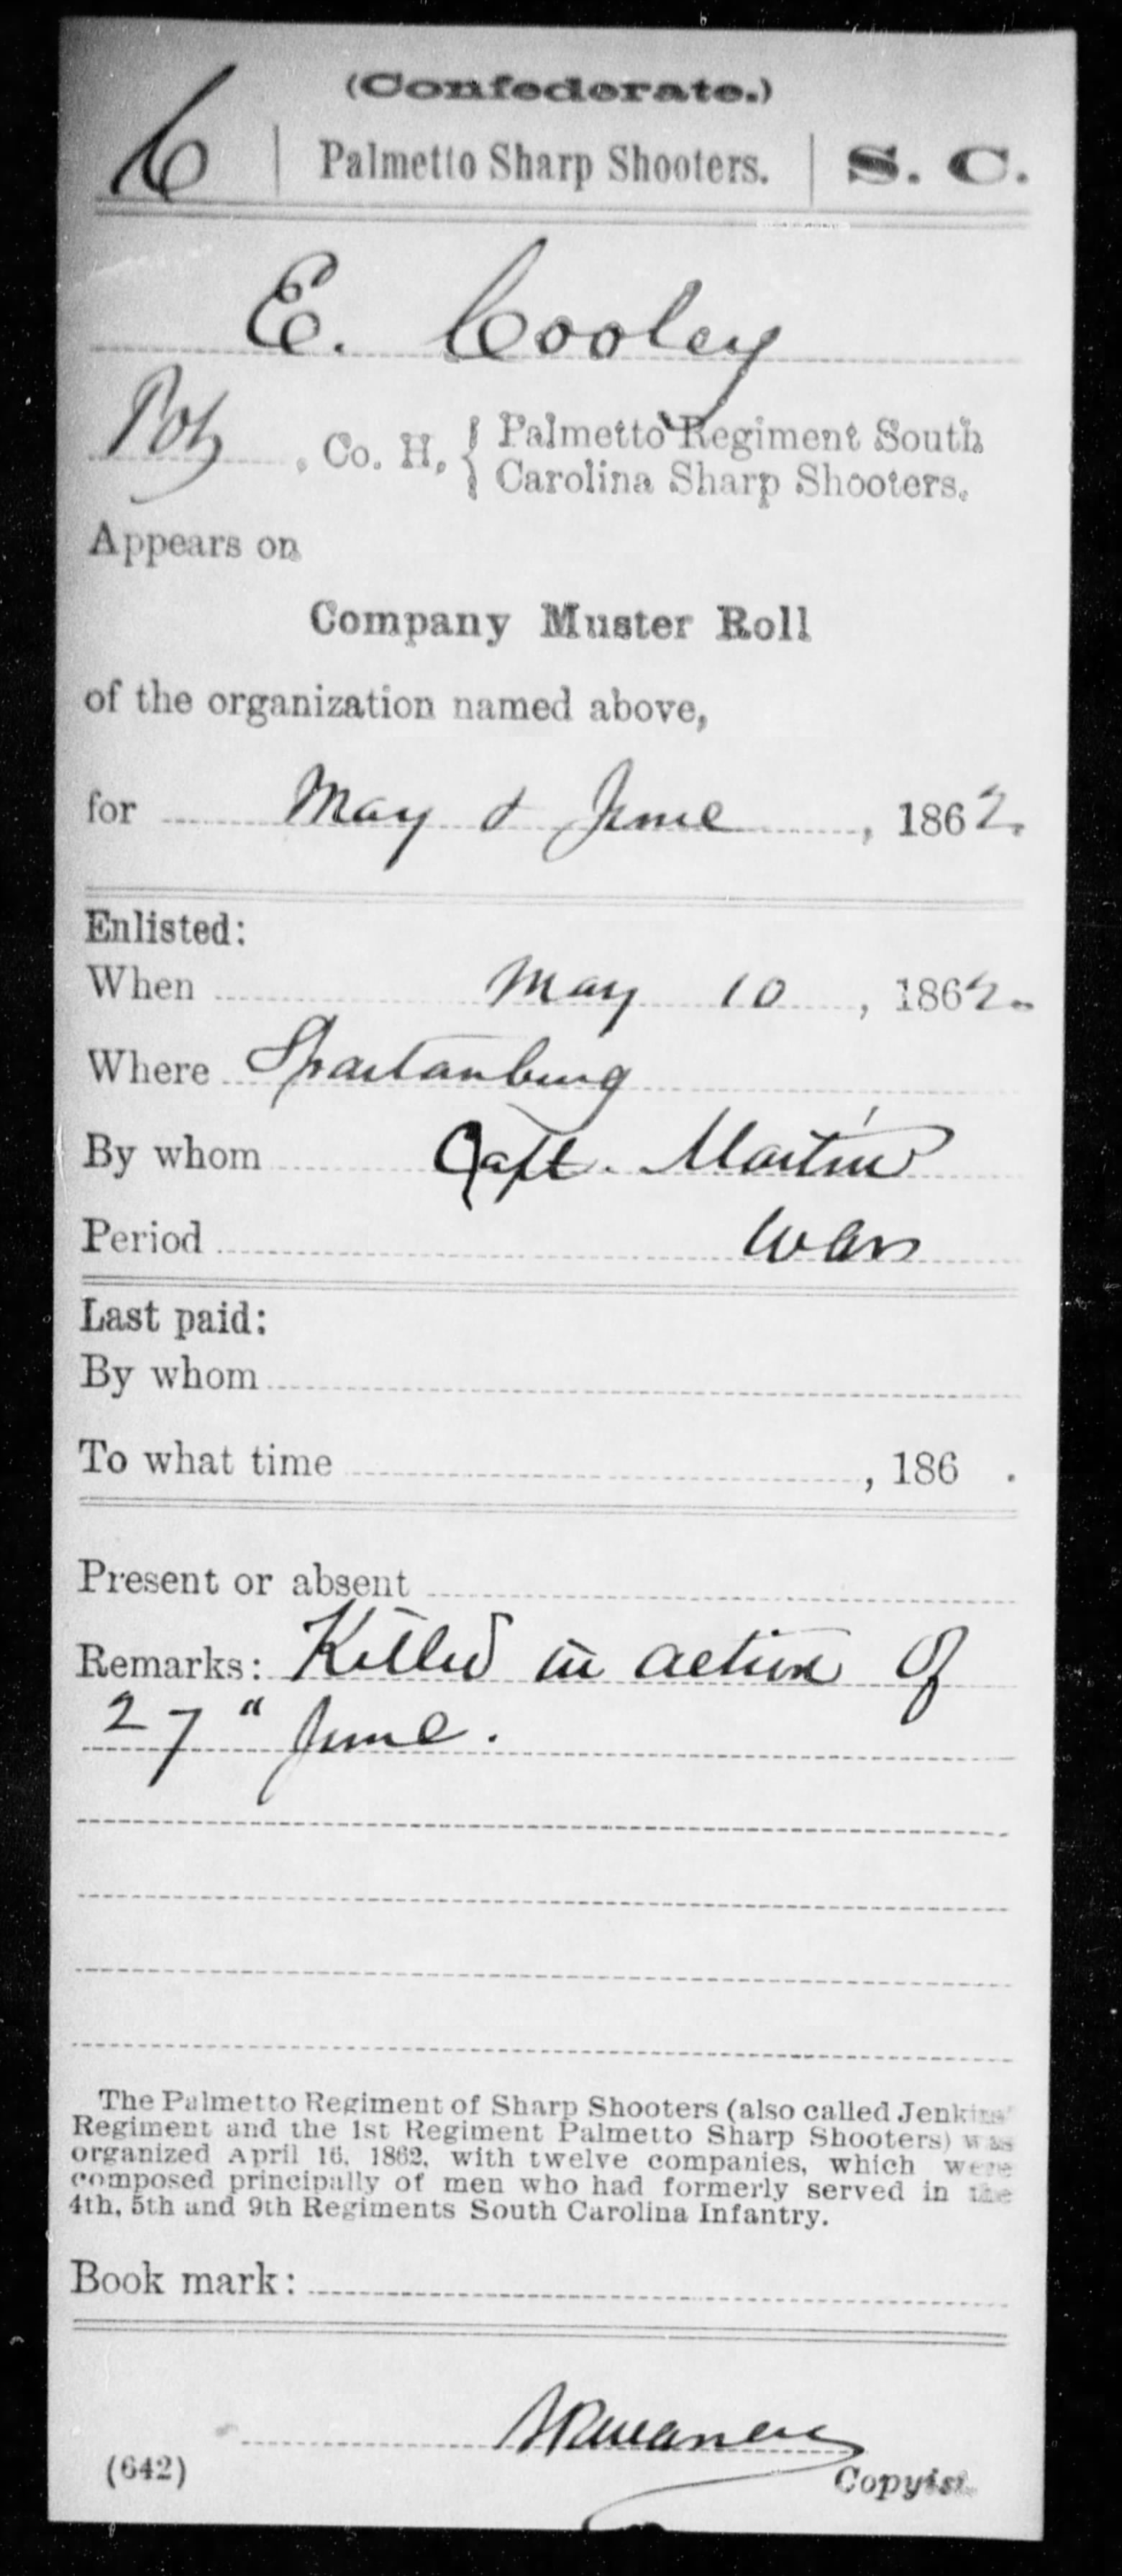 (Confederate.)
C | Palmetto Sharp Shooters. | S. C.
E. Cooley
Pvt, Co. H, { Palmetto Regiment South
Carolina Sharp Shooters.
Appears on
Company Muster Roll
of the organization named above,
for May & June, 1862.
Enlisted:
When May 10, 1862.
Where Spartanburg
By whom Capt. Martin
Period War
Last paid:
By whom
To what time , 186 .
Present or absent
Remarks: Killed in action of
27" June.
The Palmetto Regiment of Sharp Shooters (also called Jenkins'
Regiment and the 1st Regiment Palmetto Sharp Shooters) was
organized April 16, 1862, with twelve companies, which were
composed principally of men who had formerly served in the
4th, 5th and 9th Regiments South Carolina Infantry.
Book mark:
(642)
Copyist.